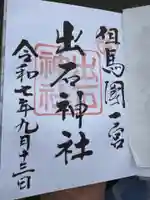 但馬國一宮
出石神社
令和七年九月十三日